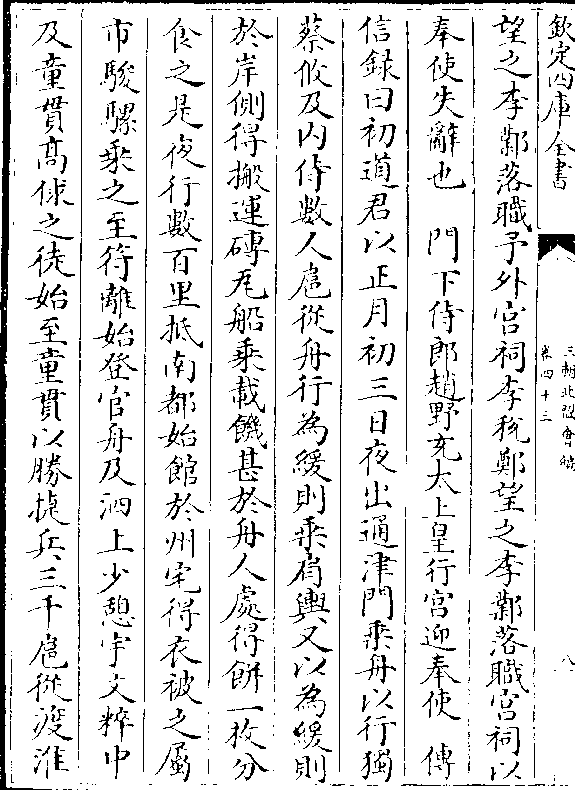 欽定四庫全書
三朝北盟會編
卷四十三
八
望之李鄴落職予外宮祠李梲鄭望之李鄴落職宮祠以
奉使失辭也　門下侍郎趙野充太上皇行宮迎奉使　傳
信録曰初道君以正月初三日夜出通津門乘舟以行獨
蔡攸及内侍數人扈從舟行為緩則乘肩輿又以為緩則
於岸側得搬運磚瓦船乘載饑甚於舟人處得餅一枚分
食之是夜行數百里抵南都始館於州宅得衣被之屬
市駿騾乘之至符離始登官舟及泗上少憩宇文粹中
及童貫髙俅之徒始至童貫以勝捷兵三千扈從渡淮